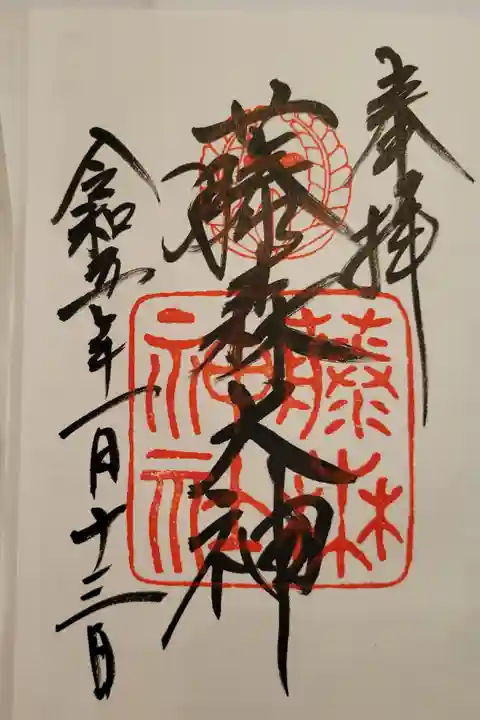 奉拝
藤森大神
藤森
神社
令和五年一月十三日